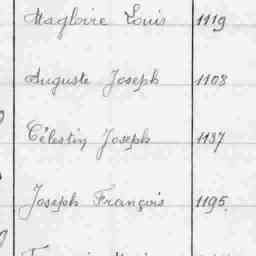 Magloire Louis 1119
Auguste Joseph 1108
Célestin Joseph 1137
Joseph François 1195